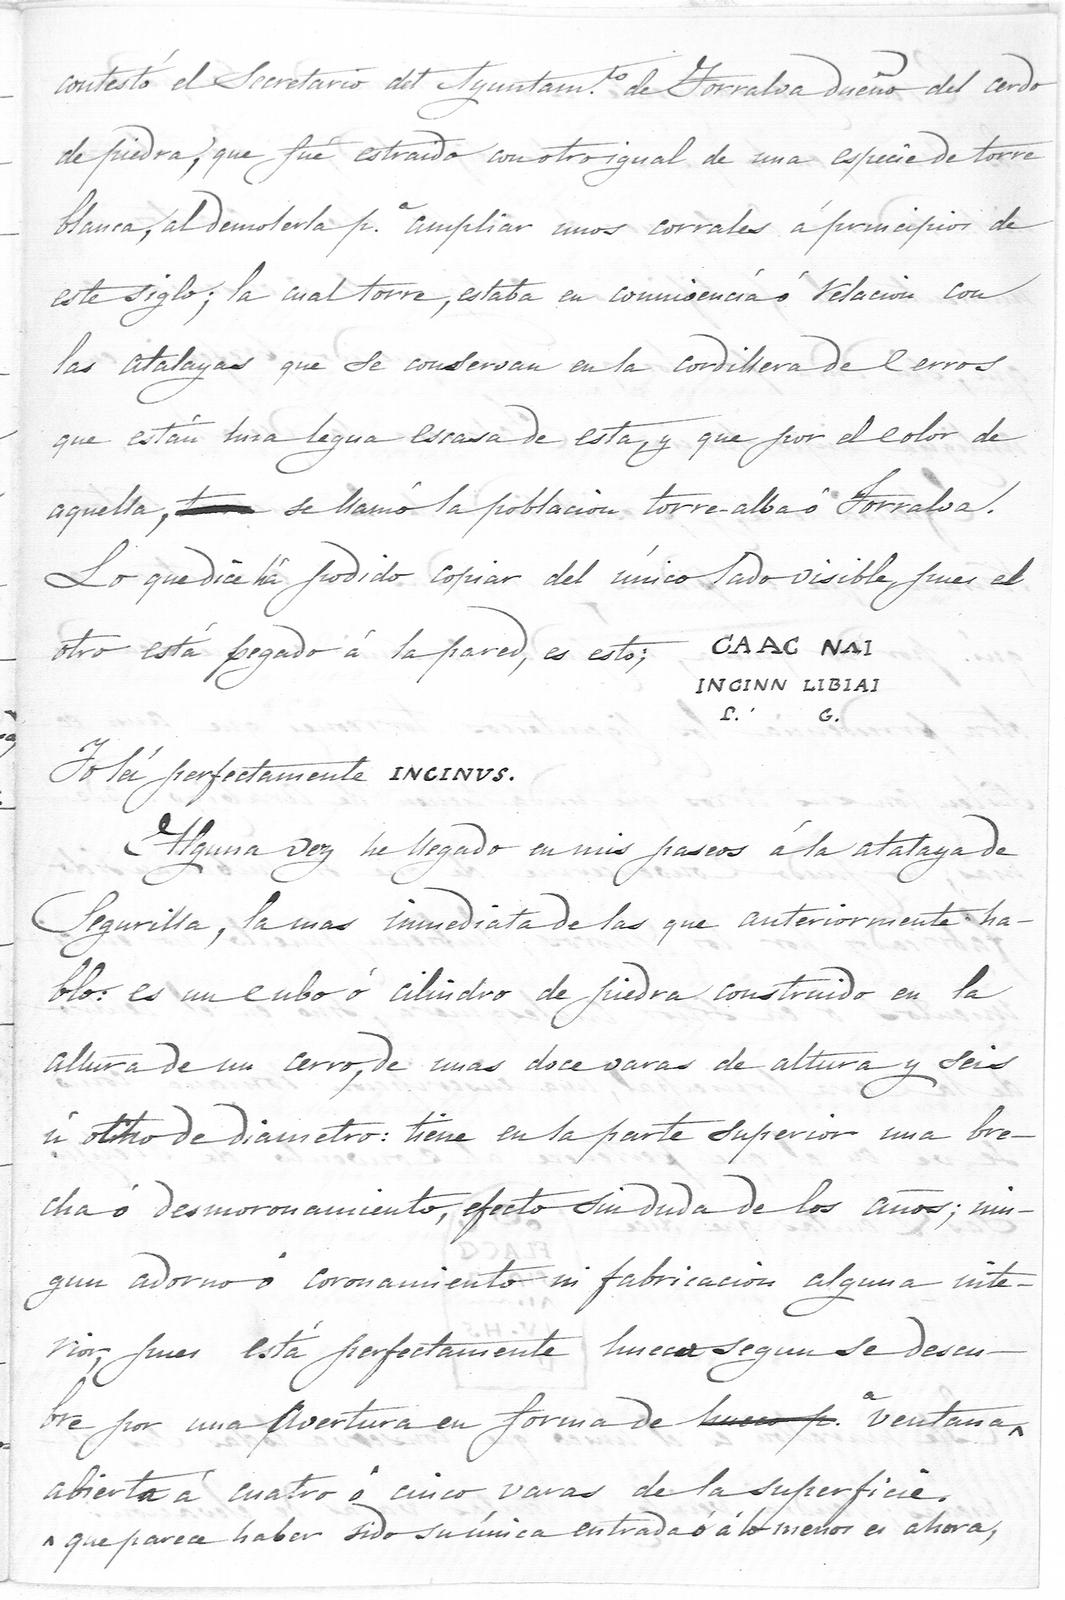 contestó el Secretario del Ayuntam.to de Torralva dueño del cerdo
de piedra, que fué estraido con otro igual de una especie de torre
blanca, al demolerla p.a ampliar unos corrales á principios de
este siglo; la cual torre, estaba en connivencia ó relacion con
las atalayas que se conservan en la cordillera de Cerros
que están una legua escasa de esta, y que por el color de
aquella, se llamó la poblacion torre-alba ó Torralva.
Lo que dice há podido copiar del único lado visible, pues el
otro está pegado á la pared, es esto; CAAC NAI
INCINN LIBIAI
L. G.
Yo léi perfectamente INCINVS.
Alguna vez he llegado en mis paseos á la atalaya de
Segurilla, la mas inmediata de las que anteriormente ha-
blo: es un cubo ó cilindro de piedra construido en la
altura de un cerro, de unas doce varas de altura y seis
ú otho de diametro: tiene en la parte superior una bre-
cha ó desmoronamiento, efecto sin duda de los años; nin-
gun adorno ó coronamiento ni fabricacion alguna inte-
rior, pues está perfectamente hueca segun se descu-
bre por una avertura en forma de ventana ^
abierta á cuatro ó cinco varas de la superficie.
^ que parece haber sido su única entrada ó á lo menos es ahora,